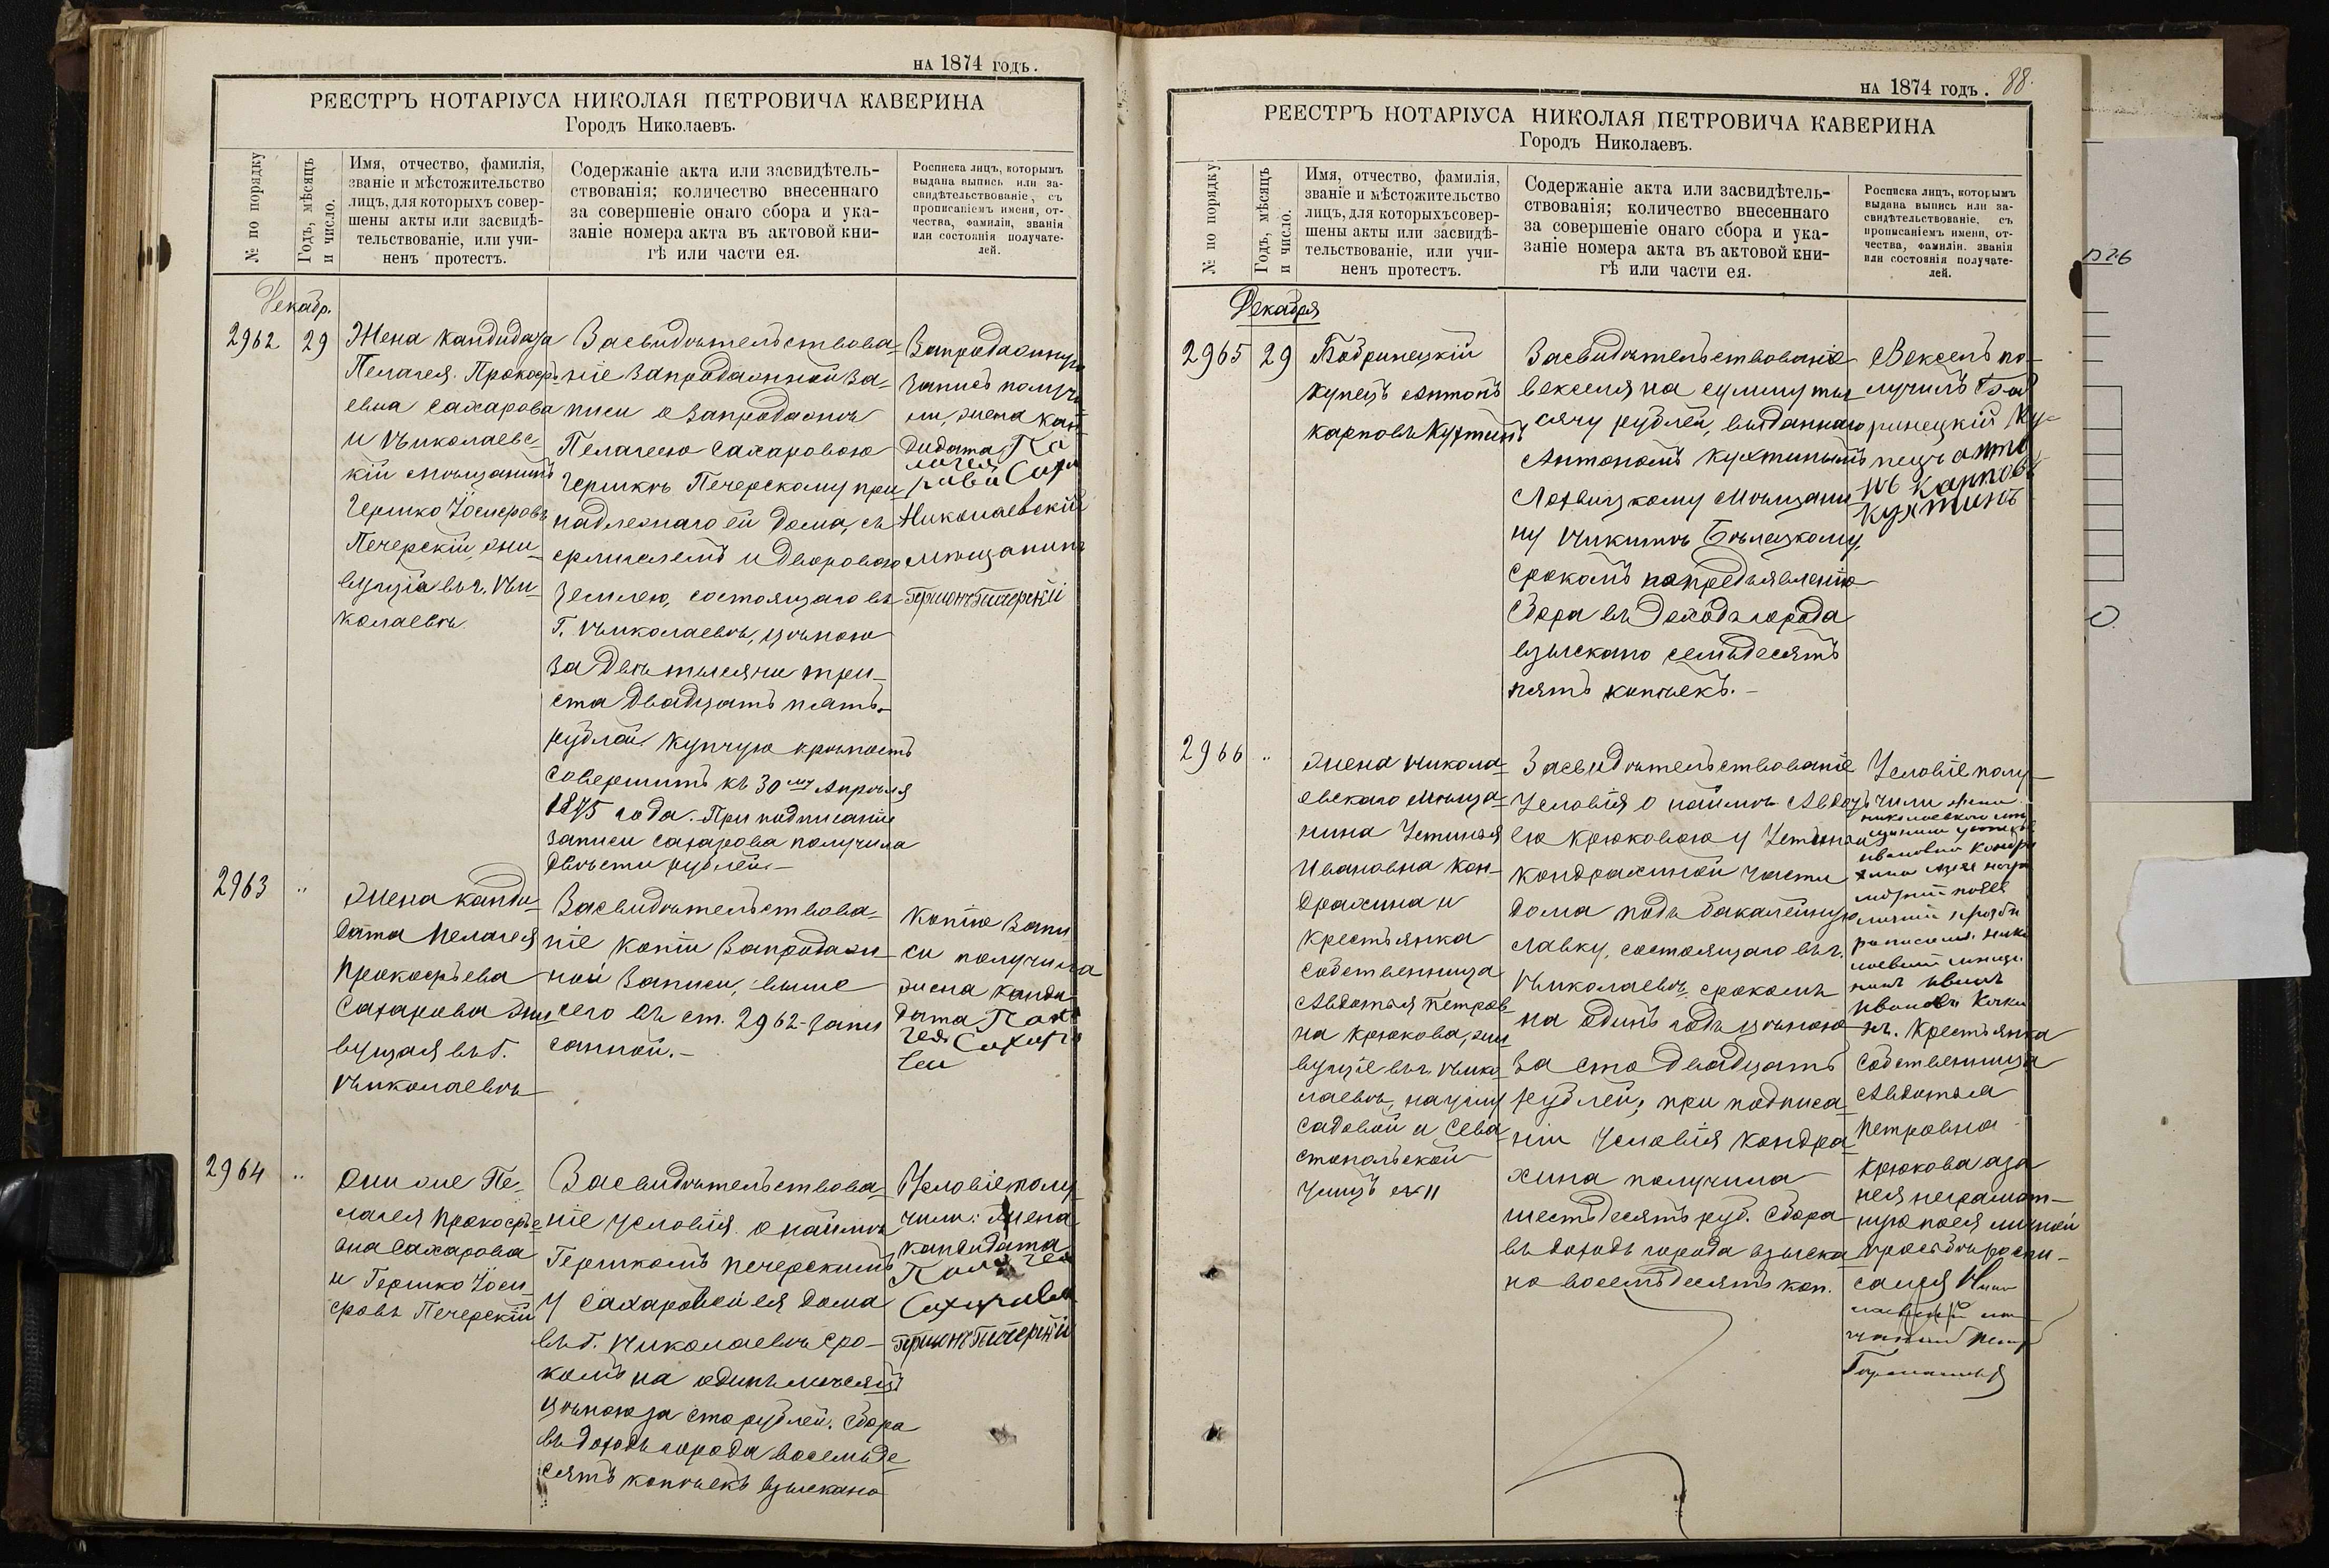 на 1874 годъ.
РЕЕСТРЪ НОТАРІУСА НИКОЛАЯ ПЕТРОВИЧА КАВЕРИНА
Городъ Николаевъ.
№ по порядку
Годъ, мѣсяцъ
и число.
Имя, отчество, фамилія,
званіе и мѣстожительство
лицъ, для которыхъ совер-
шены акты или засвидѣ-
тельствованіе, или учи-
ненъ протестъ.
Содержаніе акта или засвидѣтель-
ствованія; количество внесеннаго
за совершеніе онаго сбора и ука-
заніе номера акта въ актовой кни-
гѣ или части ея.
Росписка лицъ, которымъ
выдана выпись или за-
свидѣтельствованіе, съ
прописаніемъ имени, от-
чества, фамиліи, званія
или состоянія получате-
лей.
Декабр.
2962
29
Жена кандидата
Пелагея Прокофь-
евна Сахарова
и Николаевс
кій мѣщанинъ
Гершко Іосифовъ
Печерскій, жи-
вущіе въ г. Ни-
колаевѣ
Засвидѣтельствова-
ніе запродажной за-
писи о запродажѣ
Пелагеею Сахаровою
Гершкѣ Печерскому при
надлежаго ей дома, съ
флигелемъ и дворовою
землею, состоящаго въ
г. Николаевѣ, цѣною
за двѣ тысячи три-
ста двадцать пять
рублей. Купчую крѣпость
совершить къ 30му Апрѣля
1875 года. При подписаніи
записи Сахарова получила
двѣсти рублей.-
Запродажную
запись получи
ли, жена кан-
дидата Пе
лагея Соха
рова
Николаевскій
мѣщанинъ
Гершонъ Печерскій
2963
"
Жена канди-
дата Пелагея
Прокофьева
Сахарова жи
вущая въ г.
Николаевѣ
Засвидѣтельствова-
ніе копіи запродаж
ной записи, выше
сего въ ст. 2962-запи
санной.-
Копію запи
си получила
жена канди
дата Пела
гея Сахаро
ва
2964
"
Они же Пе-
лагея Прокофье
вна Сахарова
и Гершко Іоси-
фовъ Печерскій
Засвидѣтельствова-
ніе условія о наймѣ
Гершкомъ Печерскимъ
у Сахаровой ея дома
въ г. Николаевѣ сро-
комъ на одинъ мѣсяцъ
цѣною за сто рублей. Сбора
въ доходъ города восемьде
сять копѣекъ взыскано
Условіе полу-
чили: Жена
кандидата
Пелагея
Сахарова
Гершонъ Печерскій
на 1874 годъ. 88.
РЕЕСТРЪ НОТАРІУСА НИКОЛАЯ ПЕТРОВИЧА КАВЕРИНА
Городъ Николаевъ.
№ по порядку
Годъ, мѣсяцъ
и число.
Имя, отчество, фамилія,
званіе и мѣстожительство
лицъ, для которыхъ совер-
шены акты или засвидѣ-
тельствованіе, или учи-
ненъ протестъ.
Содержаніе акта или засвидѣтель-
ствованія; количество внесеннаго
за совершеніе онаго сбора и ука-
заніе номера акта въ актовой кни-
гѣ или части ея.
Росписка лицъ, которымъ
выдана выпись или за-
свидѣтельствованіе, съ
прописаніемъ имени, от-
чества, фамиліи. званія
или состоянія получате-
лей.
Декабря
2965
29
Бобринецкій
купецъ Антонъ
Карповъ Кухтинъ
Засвидѣтельствованіе
векселя на сумму ты
сячу рублей, выданнаго
Антономъ Кухтинымъ
мѣщани
ну Никитѣ Бѣлецкому,
срокомъ по предъявленію
Сбора въ доходъ города
взыскано семьдесятъ
пять копѣекъ.-
Вексель по-
лучилъ Боб
ринецкій Ку-
пецъ Анто
нъ Карповъ
Кухтинъ
2966
"
Жена Никола-
евскаго мѣща-
нина Устинья
Ивановна Кон-
драхина и
крестьянка
собственница
Авдотья Петров
на Крюкова, жи
вущіе въ г. Нико
лаевѣ, на углу
Садовой и Сева
стопольской
улицъ
Засвидѣтельствованіе
условія о наймѣ Авдоть
ею Крюковою у Устиньи
Кондрахиной части
дома подъ бакалейную
лавку, состоящаго въ г.
Николаевѣ срокомъ
на одинъ годъ цѣною
за сто двадцать
рублей; при подписа
ніи условія Кондра
хина получила
шестьдесять руб. Сбора
въ доходъ города взыска
но восемьдесятъ коп.
Условіе полу-
чили жена
николаевскаго мѣ
щанина
Ивановна Кондра
хина
Иванъ
Крестьянка
собственница
Авдотья
Петровна
Крюкова а за
нея неграмот-
ную по ея личной
просьбѣ распи-
сался
№26